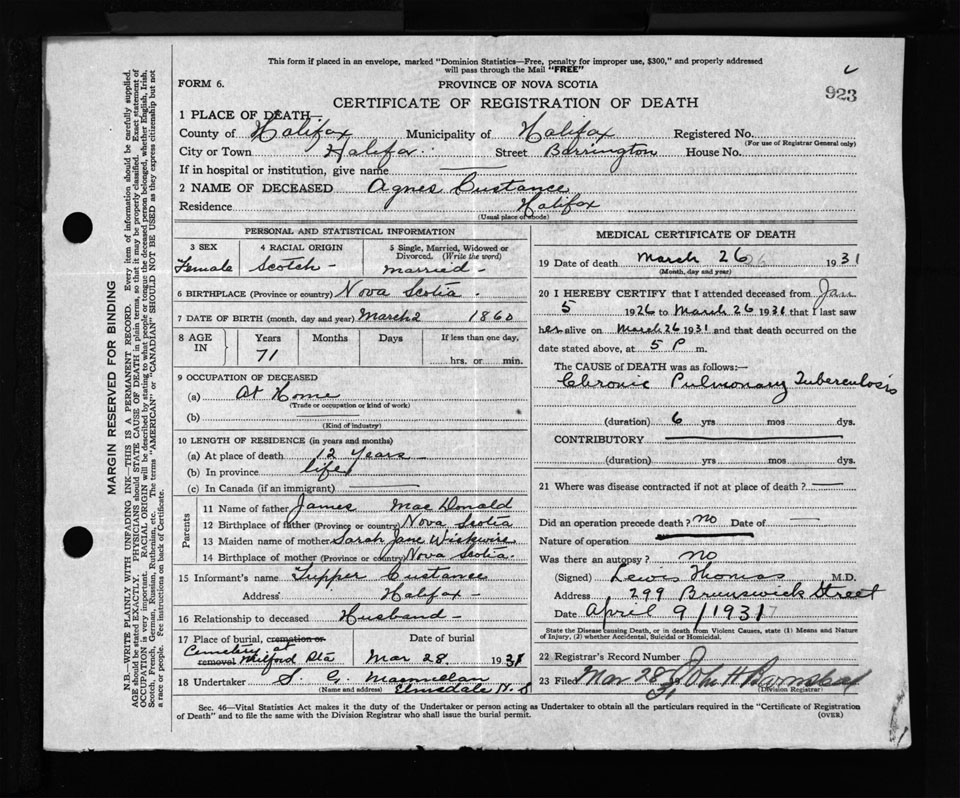 This form if placed in an envelope, marked "Dominion Statistics—Free, penalty for improper use, $300," and properly addressed
will pass through the Mail "FREE"
FORM 6. PROVINCE OF NOVA SCOTIA 923
CERTIFICATE OF REGISTRATION OF DEATH
1 PLACE OF DEATH—
County of Halifax Municipality of Halifax Registered No.
(For use of Registrar General only)
City or Town Halifax Street Barrington House No.
If in hospital or institution, give name
2 NAME OF DECEASED Agnes Custance
Residence Halifax
(Usual place of abode)
PERSONAL AND STATISTICAL INFORMATION
3 SEX 4 RACIAL ORIGIN 5 Single, Married, Widowed or
Divorced. (Write the word)
Female Scotch – married –
6 BIRTHPLACE (Province or country) Nova Scotia.
7 DATE OF BIRTH (month, day and year) March 2 1860
8 AGE IN Years Months Days If less than one day.
71 hrs. or min.
9 OCCUPATION OF DECEASED
(a) At Home
(Trade or occupation or kind of work)
(b)
(Kind of industry)
10 LENGTH OF RESIDENCE (in years and months)
(a) At place of death 12 Years –
(b) In province life
(c) In Canada (if an immigrant)
Parents
11 Name of father James MacDonald
12 Birthplace of father (Province or country) Nova Scotia
13 Maiden name of mother Sarah Jane Wickwire
14 Birthplace of mother (Province or country) Nova Scotia.
15 Informant's name Tupper Custance
Address Halifax –
16 Relationship to deceased Husband –
17 Place of burial, cremation or Date of burial
Cemetery at
removal Milford Stn Mar 28. 1931
18 Undertaker S. G. Macmillan
(Name and address) Elmsdale N.S
MEDICAL CERTIFICATE OF DEATH
19 Date of death March 26 1931
(Month, day and year)
20 I HEREBY CERTIFY that I attended deceased from Jan
5 1926 to March 26 1931 that I last saw
her alive on March 26 1931 and that death occurred on the
date stated above, at 5 P m.
The CAUSE OF DEATH was as follows:—
Chronic Pulmonary Tuberculosis
(duration) 6 yrs mos dys.
CONTRIBUTORY
(duration) yrs mos dys.
21 Where was disease contracted if not at place of death?
Did an operation precede death? no Date of
Nature of operation
Was there an autopsy? no
(Signed) Lewis Thomas M.D.
Address 299 Brunswick Street
Date April 9/1931
State the Disease causing Death, or in death from Violent Causes, state (1) Means and Nature
of Injury, (2) whether Accidental, Suicidal or Homicidal.
22 Registrar's Record Number
23 Filed Mar 28 31 John H Barnstead
(Division Registrar)
Sec. 46—Vital Statistics Act makes it the duty of the Undertaker or person acting as Undertaker to obtain all the particulars required in the "Certificate of Registration
of Death" and to file the same with the Division Registrar who shall issue the burial permit. (OVER)
MARGIN RESERVED FOR BINDING
N.B.—WRITE PLAINLY WITH UNFADING INK—THIS IS A PERMANENT RECORD. Every item of information should be carefully supplied.
AGE should be stated EXACTLY. PHYSICIANS should STATE CAUSE OF DEATH in plain terms, so that it may be properly classified. Exact statement of
OCCUPATION is very important. RACIAL ORIGIN will be described by stating to what people or tongue the deceased person belonged, whether English, Irish,
Scotch, French, German, Russian, Ruthenian, etc. The terms "AMERICAN" or "CANADIAN" SHOULD NOT BE USED as they express citizenship but not
a race or people. Fee instructions on back of Certificate.